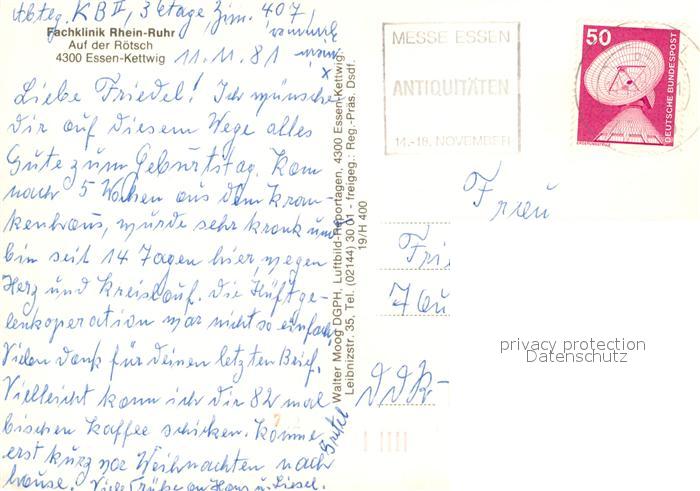 Abteg. KB II, 3 etage Zim. 407
Fachklinik Rhein-Ruhr
Auf der Rötsch
4300 Essen-Kettwig
11.11.81
Liebe Friedel! Ich wünsche
dir auf diesem Wege alles
Gute zum Geburtstag. Kam
nach 5 Wochen aus dem Kran-
kenhaus, wurde sehr krank und
bin seit 14 Tagen hier, wegen
Herz und Kreislauf. Die Hüftge-
lenkoperation war nicht so einfach.
Vielen Dank für deinen letzten Brief.
Vielleicht kann ich dir 82 mal
bischen Kaffee schicken. Komme
erst kurz vor Weihnachten nach
hause. Viele Grüße an Hans u. Liesel.
Walter Moog DGPH, Luftbild-Reportagen, 4300 Essen-Kettwig
Leibnizstr. 35, Tel. (02144) 30 01 - freigeg.: Reg.-Präs. Dsdf.
19/H 400
MESSE ESSEN
ANTIQUITÄTEN
14.-18. NOVEMBER
50
DEUTSCHE BUNDESPOST
Frau
Fri
DDR-
privacy protection
Datenschutz